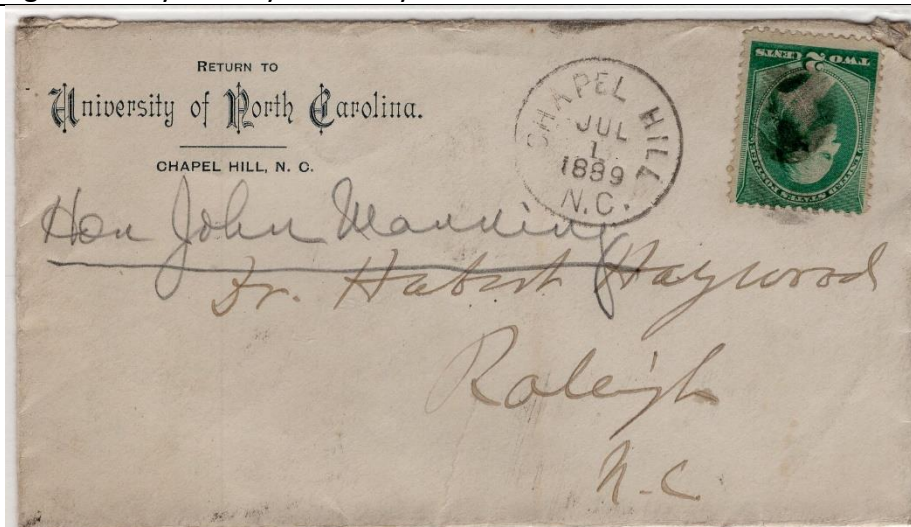 RETURN TO
University of North Carolina.
CHAPEL HILL, N. C.
CHAPEL HILL
JUL
1
1889
N.C.
TWO 2 CENTS
Hon John Manning
Dr. Hubert Haywood
Raleigh
N.C